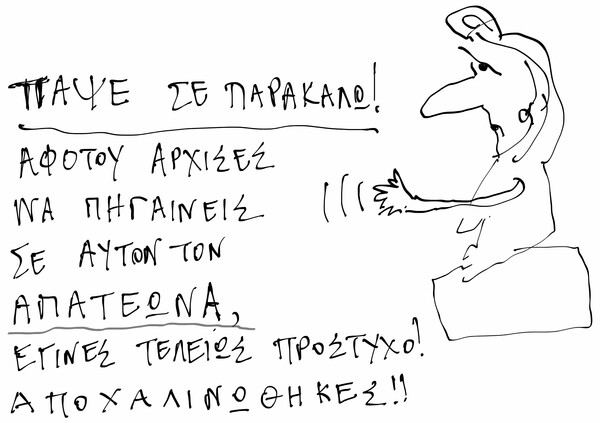 ΠΑΨΕ ΣΕ ΠΑΡΑΚΑΛΩ!
ΑΦΟΤΟΥ ΑΡΧΙΣΕΣ
ΝΑ ΠΗΓΑΙΝΕΙΣ
ΣΕ ΑΥΤΟΝ ΤΟΝ
ΑΠΑΤΕΩΝΑ,
ΕΓΙΝΕΣ ΤΕΛΕΙΩΣ ΠΡΟΣΤΥΧΟ!
ΑΠΟΧΑΛΙΝΩΘΗΚΕΣ!!